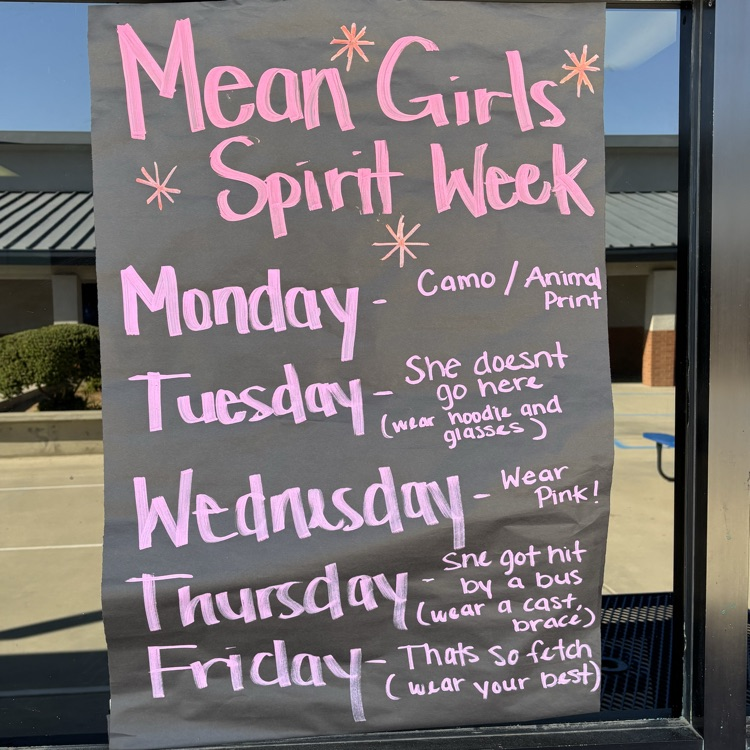 Mean Girls
Spirit Week
Monday - Camo / Animal
Print
Tuesday - She doesnt
go here
(wear hoodie and
glasses)
Wednesday - Wear
Pink!
Thursday - She got hit
by a bus
(wear a cast,
brace)
Friday - Thats so fetch
(wear your best)